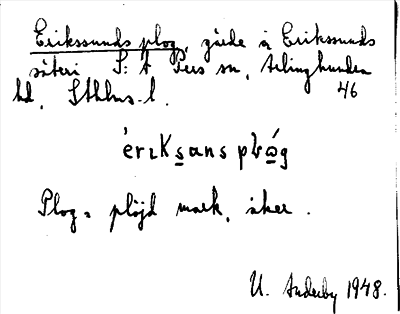 Erikssunds plog, gärde å Erikssunds
säteri S:t Pers sn, Ärlinghundra
hd, Sthlms l. 46
érɪksans plωg
Plog = plöjd mark, åker.
U. Anderby 1948.